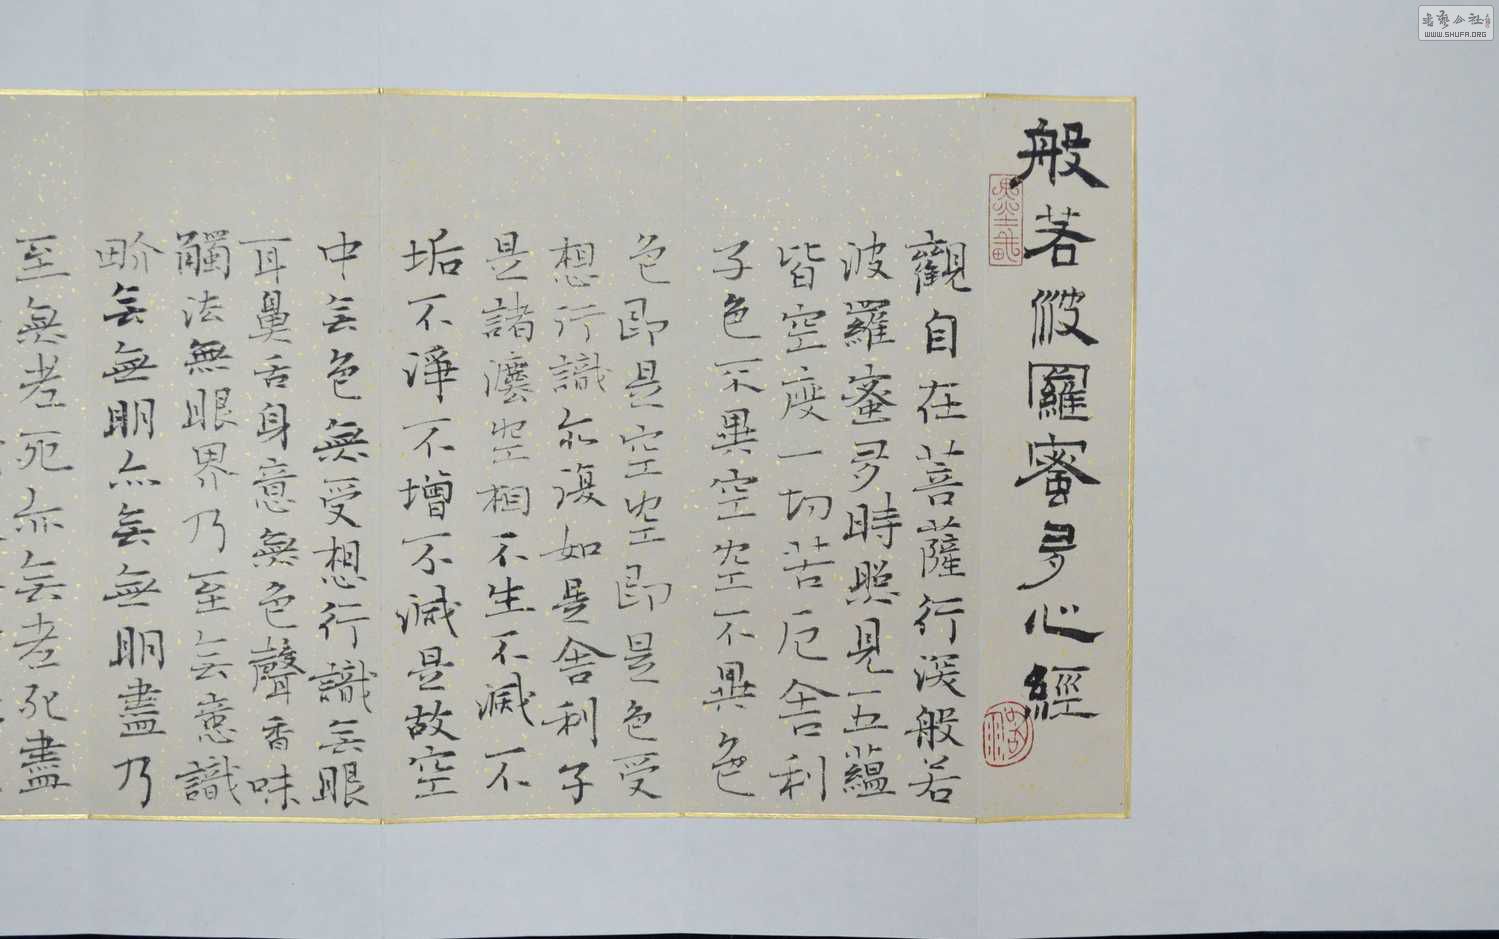 般若波羅蜜多心經
觀自在菩薩行深般若
波羅蜜多時照見五蘊
皆空度一切苦厄舍利
子色不異空空不異色
色即是空空即是色受
想行識亦復如是舍利子
是諸灋空相不生不滅不
垢不淨不增不減是故空
中无色無受想行識无眼
耳鼻舌身意無色聲香味
觸法無眼界乃至无意識
畍无無明亦无無明盡乃
至無老死亦无老死盡
书艺公社
WWW.SHUFA.ORG